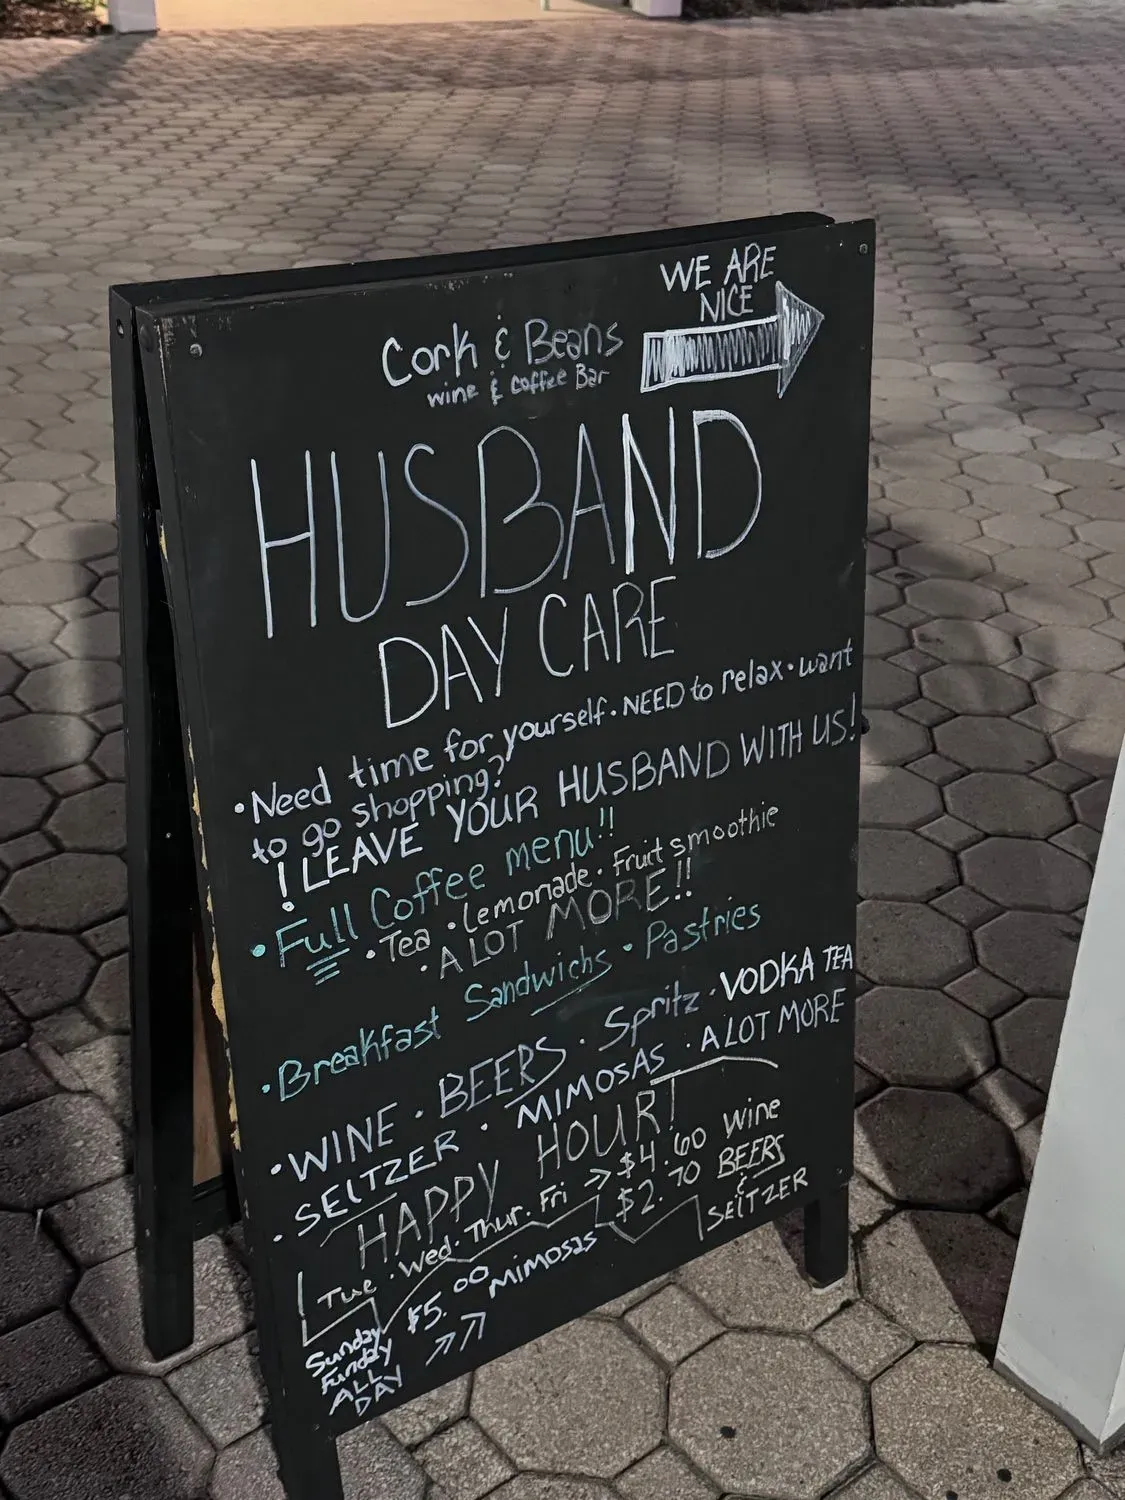 WE ARE
NICE
Cork & Beans
wine & coffee Bar
HUSBAND
DAY CARE
• Need time for yourself • NEED to relax • want
to go shopping?
! LEAVE YOUR HUSBAND WITH US!
• Full Coffee menu!!
• Tea • Lemonade • Fruit smoothie
• A LOT MORE!!
• Breakfast Sandwichs • Pastries
• WINE • BEERS • Spritz • VODKA TEA
• SELTZER • MIMOSAS • A LOT MORE
HAPPY HOUR!
Tue • Wed • Thur • Fri > $4.60 Wine
$2.70 BEERS
&
SELTZER
Sunday
Funday
ALL
DAY
$5.00 MIMOSAS
>>